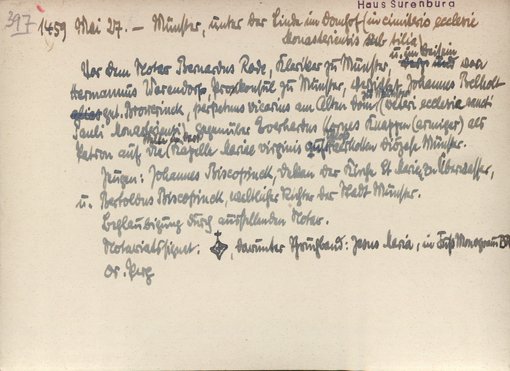 Haus Surenburg
397 1459 Mai 27. – Münster, unter der Linde im Domhof (in cimiterio ecclesie
Monasteriensis sub tilia)
Vor dem Notar Bernardus Rode, Kleriker zu Münster, u. im Beisein von
Hermannus Warendorp, Prokonsul zu Münster, verzichtet Johannes Bekholt
alias gnt. Browerinck, perpetuus vicarius am Alten Dom (veteri ecclesie sancti
Pauli Monasteriensi) gegenüber Everhardus Knappen (armiger) als
Patron auf die Kapelle Mariae virginis Diözese Münster.
Zeugen: Johannes Biscopinck, Dekan der Kirche St. Mariae zu Überwasser,
u. Bertoldus Biscopinck, weltlicher Richter der Stadt Münster.
Beglaubigung durch ausstellenden Notar.
Notariatssignet. , darunter Spruchband: Jesus Maria, im Fuß Monogramm BR
Or. Perg.